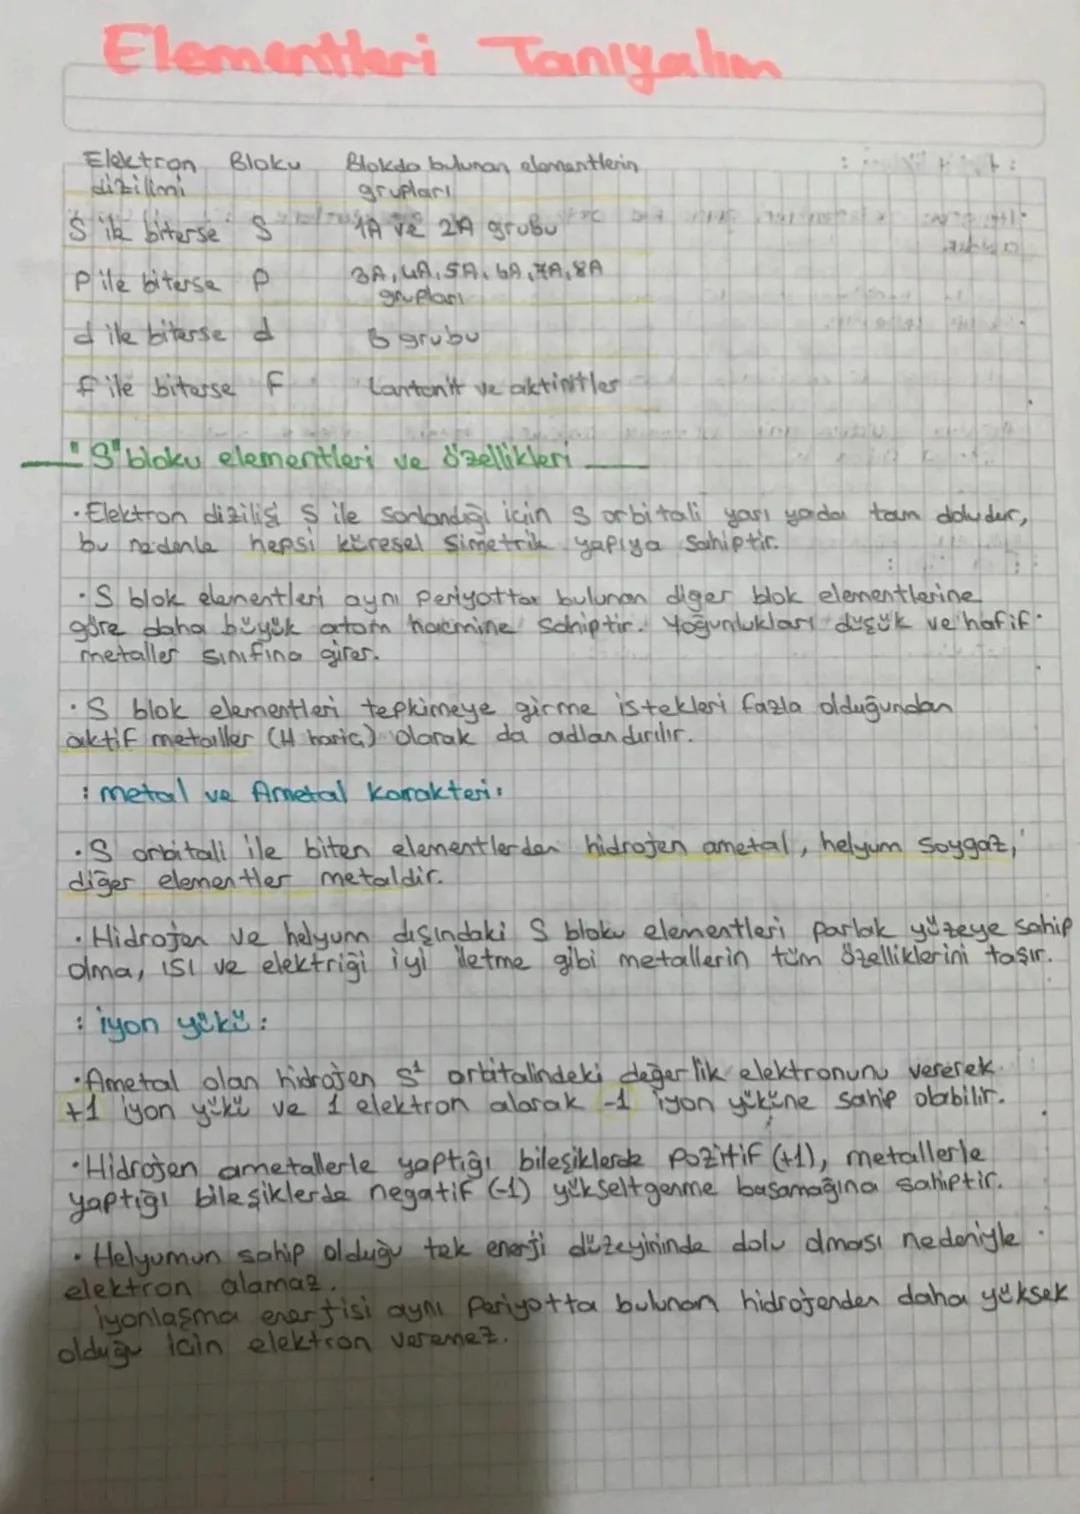 Elementleri Tanıyalım
Elektron Bloku Blokda bulunan elementlerin
dizilimi grupları
S ile biterse S 1A ve 2A grubu
P ile biterse P 3A, 4A, 5A, 6A, 7A, 8A
grupları
d ile biterse d B grubu
f ile biterse F Lantonit ve aktinitler
"S" bloku elementleri ve özellikleri
• Elektron dizilişi S ile sonlandığı için S orbitali yarı yada tam doludur,
bu nedenle hepsi küresel simetrik yapıya sahiptir.
• S blok elementleri aynı periyotta bulunan diğer blok elementlerine
göre daha büyük atom hacmine sahiptir. Yoğunlukları düşük ve hafif
metaller sınıfına girer.
• S blok elementleri tepkimeye girme istekleri fazla olduğundan
aktif metaller (H hariç) olarak da adlandırılır.
: metal ve Ametal karakteri:
• S orbitali ile biten elementlerden hidrojen ametal, helyum soygaz,
diğer elementler metaldir.
• Hidrojen ve helyum dışındaki S bloku elementleri parlak yüzeye sahip
olma, ısı ve elektriği iyi iletme gibi metallerin tüm özelliklerini taşır.
: iyon yükü :
• Ametal olan hidrojen S¹ orbitalindeki değerlik elektronunu vererek
+1 iyon yükü ve 1 elektron alarak -1 iyon yüküne sahip olabilir.
• Hidrojen ametallerle yaptığı bileşiklerde pozitif (+1), metallerle
yaptığı bileşiklerde negatif (-1) yükseltgenme basamağına sahiptir.
• Helyumun sahip olduğu tek enerji düzeyininde dolu olması nedeniyle
elektron alamaz.
iyonlaşma enerjisi aynı periyotta bulunan hidrojenden daha yüksek
olduğu için elektron veremez.